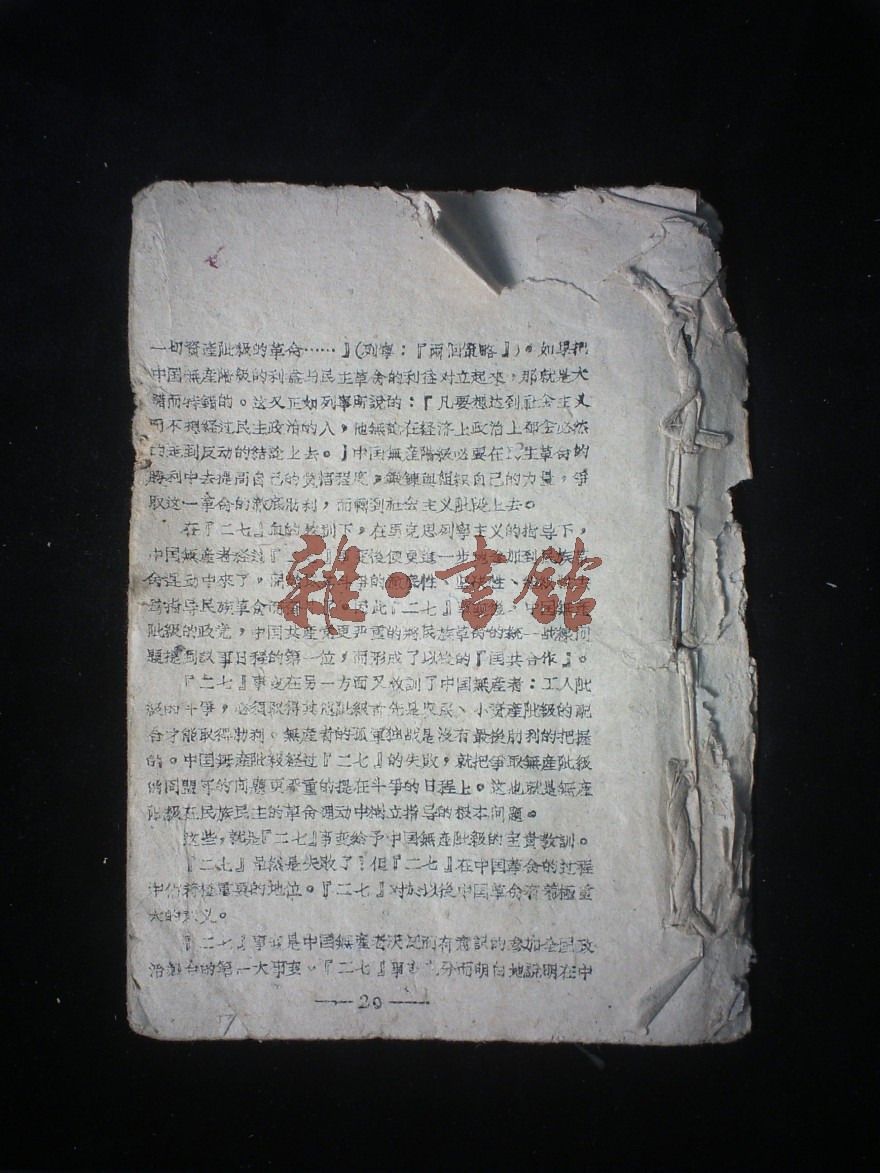 一切資產阶級的革命……』(列寧：『兩個策略』)。如果把
中国無產階級的利益与民主革命的利益对立起來，那就是大
錯而特錯的。这又正如列寧所說的：『凡要想达到社会主义
而不想经过民主政治的人，他無論在経濟上政治上都会必然
的走到反动的結論上去。』中国無產階級必要在民主革命的
勝利中去提高自己的覚悟程度，鍛鍊與組織自己的力量，爭
取这一革命的澈底勝利，而轉到社会主义阶段上去。
在『二七』血的教訓下，在馬克思列寧主义的指导下，
中国無產者経过『二七』事变後便更進一步地参加到民族革
命運动中來了，
指导民族革命 因此『二七』事变後，中国無產
阶級的政党，中国共產党更严重的將民族革命的統一战線问
題提到议事日程的第一位，而形成了以後的『国共合作』。
『二七』事变在另一方面又敎訓了中国無產者：工人阶
級的斗爭，必須取得其他阶級首先是農民、小資產阶級的配
合才能取得胜利。無產者的孤軍独战是沒有最後胜利的把握
的。中国無產阶級経过『二七』的失敗，就把爭取無產阶級
的同盟軍的问題更严重的提在斗爭的日程上。这也就是無產
阶級在民族民主的革命運动中獨立指导的根本问題。
这些，就是『二七』事变給予中国無產阶級的宝贵敎訓。
『二七』虽然是失敗了！但『二七』在中国革命的过程
中佔着極重要的地位。『二七』对於以後中国革命有着極重
大的意义。
『二七』事变是中国無產者 有意識的参加全国政
治舞台的第一大事变。『二七』事变 分而明白地說明在中
——20——
雜·書館